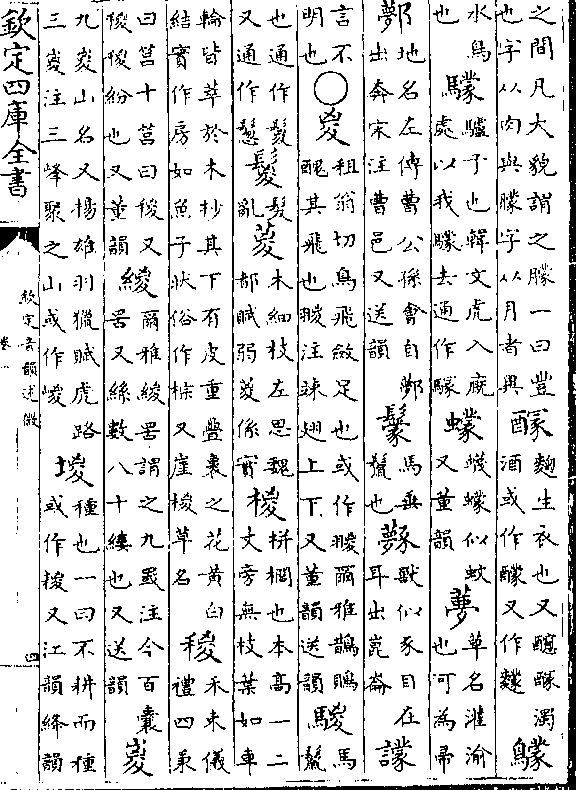 之間凡大貌謂之朦一曰豐
也字从肉與朦字从月者異
䤓
麴生衣也又醲䤓濁
酒或作䤓又作䴿
鸏
水鳥
也
驢子也韓文虎入廐
處以我䑃去通作
蠓
蠛蠓似蚊
又董韻
夢
草名灌渝
也可為帚
鄸
地名左傳曹公孫會自鄸
出奔宋注曹邑又送韻
馬垂
鬣也
獸似豕目在
耳出崑崙
言不
明也
○
㚇
祖翁切鳥飛斂足也或作䎫爾雅鵲鵙
醜其飛也䎫注竦翅上下又董韻送韻
騣
馬
鬣
也通作鬉
又通作
鬉
髮
亂
葼
木細枝左思魏
都賦弱葼係實
椶
栟櫚也本高一二
丈旁無枝葉如車
輪皆萃於木杪其下有皮重疊裹之花黃白
結實作房如魚子狀俗作棕又崖椶草名
稯
禾束儀
禮四秉
曰筥十筥曰稯又
稯稯紛也又董韻
緵
爾雅緵罟謂之九罭注今百囊
罟又絲數八十縷也又送韻
嵏
九嵏山名又楊雄羽獵賦虎路
三嵏注三峰聚之山或作嵕
堫
種也一曰不耕而種
或作椶又江韻絳韻
欽定四庫全書
欽定音韻述微
卷一
四